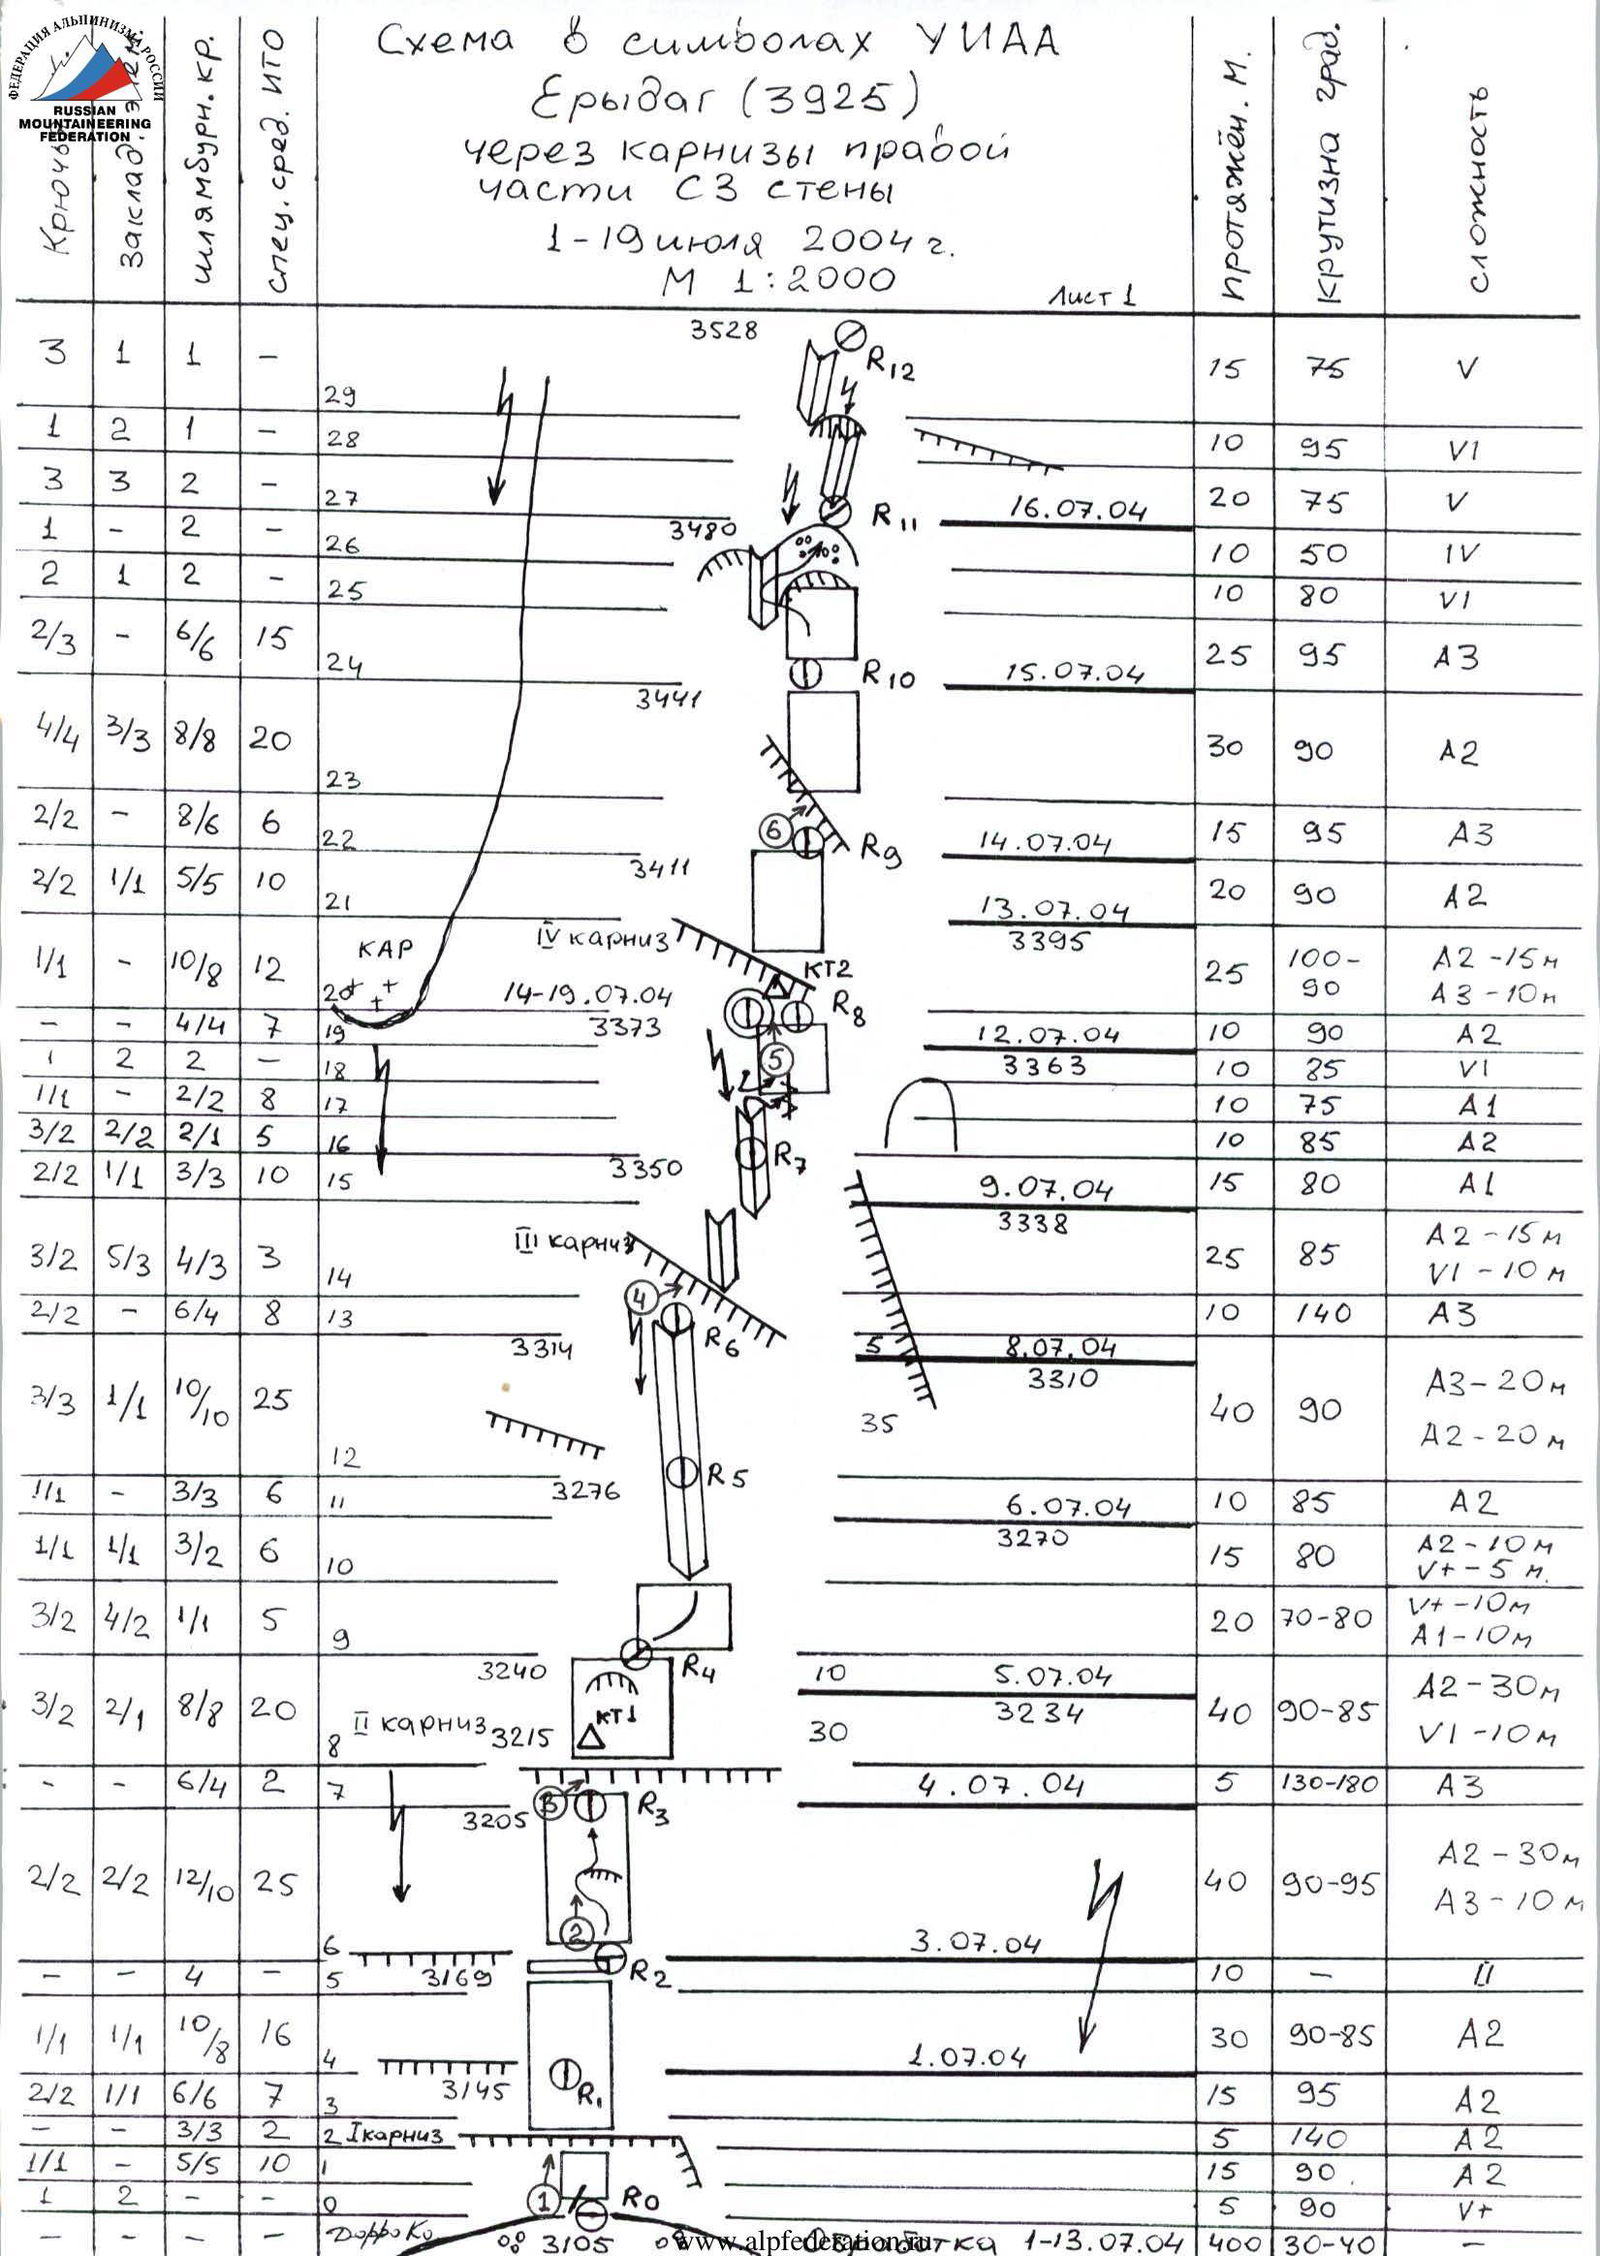 ФЕДЕРАЦИЯ АЛЬПИНИЗМА РОССИИ
RUSSIAN
MOUNTAINEERING
FEDERATION
Крючья
Заклад. элем.
шлямбурн. кр.
спец. сред. ИТО
Схема в символах УИАА
Ерыдаг (3925)
через карнизы правой
части СЗ стены
1-19 июля 2004 г.
М 1:2000
Лист 1
протяжён. м.
крутизна град.
сложность
3 1 1 – 29 3528 R12 15 75 V
1 2 1 – 28 10 95 VI
3 3 2 – 27 R11 16.07.04 20 75 V
1 – 2 – 26 3480 10 50 IV
2 1 2 – 25 10 80 VI
2/3 – 6/6 15 24 R10 15.07.04 25 95 А3
3441
4/4 3/3 8/8 20 23 30 90 А2
2/2 – 8/6 6 22 6 R9 14.07.04 15 95 А3
3411
2/2 1/1 5/5 10 21 13.07.04 20 90 А2
3395
КАР
IV карниз
КТ2
1/1 – 10/8 12 20 14-19.07.04 R8 25 100-90 А2-15м
А3-10м
3373
– – 4/4 7 19 12.07.04 10 90 А2
3363
1 2 2 – 18 5 10 85 VI
1/1 – 2/2 8 17 10 75 А1
3/2 2/2 2/1 5 16 R7 10 85 А2
3350
2/2 1/1 3/3 10 15 9.07.04 15 80 А1
3338
III карниз
3/2 5/3 4/3 3 14 25 85 А2-15м
VI-10м
2/2 – 6/4 8 13 4 10 140 А3
3314 R6 5 8.07.04
3310
3/3 1/1 10/10 25 12 35 40 90 А3-20м
А2-20м
R5
3276
1/1 – 3/3 6 11 6.07.04 10 85 А2
3270
1/1 1/1 3/2 6 10 15 80 А2-10м
V+-5 м.
3/2 4/2 1/1 5 9 20 70-80 V+-10м
А1-10м
3240 R4 10 5.07.04
3234
3/2 2/1 8/8 20 8 II карниз 3215 КТ1 30 40 90-85 А2-30м
VI-10м
– – 6/4 2 7 4.07.04 5 130-180 А3
3205 3 R3
2/2 2/2 12/10 25 6 2 40 90-95 А2-30м
А3-10м
3.07.04
– – 4 – 5 3169 R2 10 – II
1/1 1/1 10/8 16 4 1.07.04 30 90-85 А2
3145 R1
2/2 1/1 6/6 7 3 15 95 А2
– – 3/3 2 2 I карниз 5 140 А2
1/1 – 5/5 10 1 15 90 А2
1 2 – – 0 1 R0 5 90 V+
– – – – 3105 1-13.07.04 400 30-40 –
www.alpfederation.ru